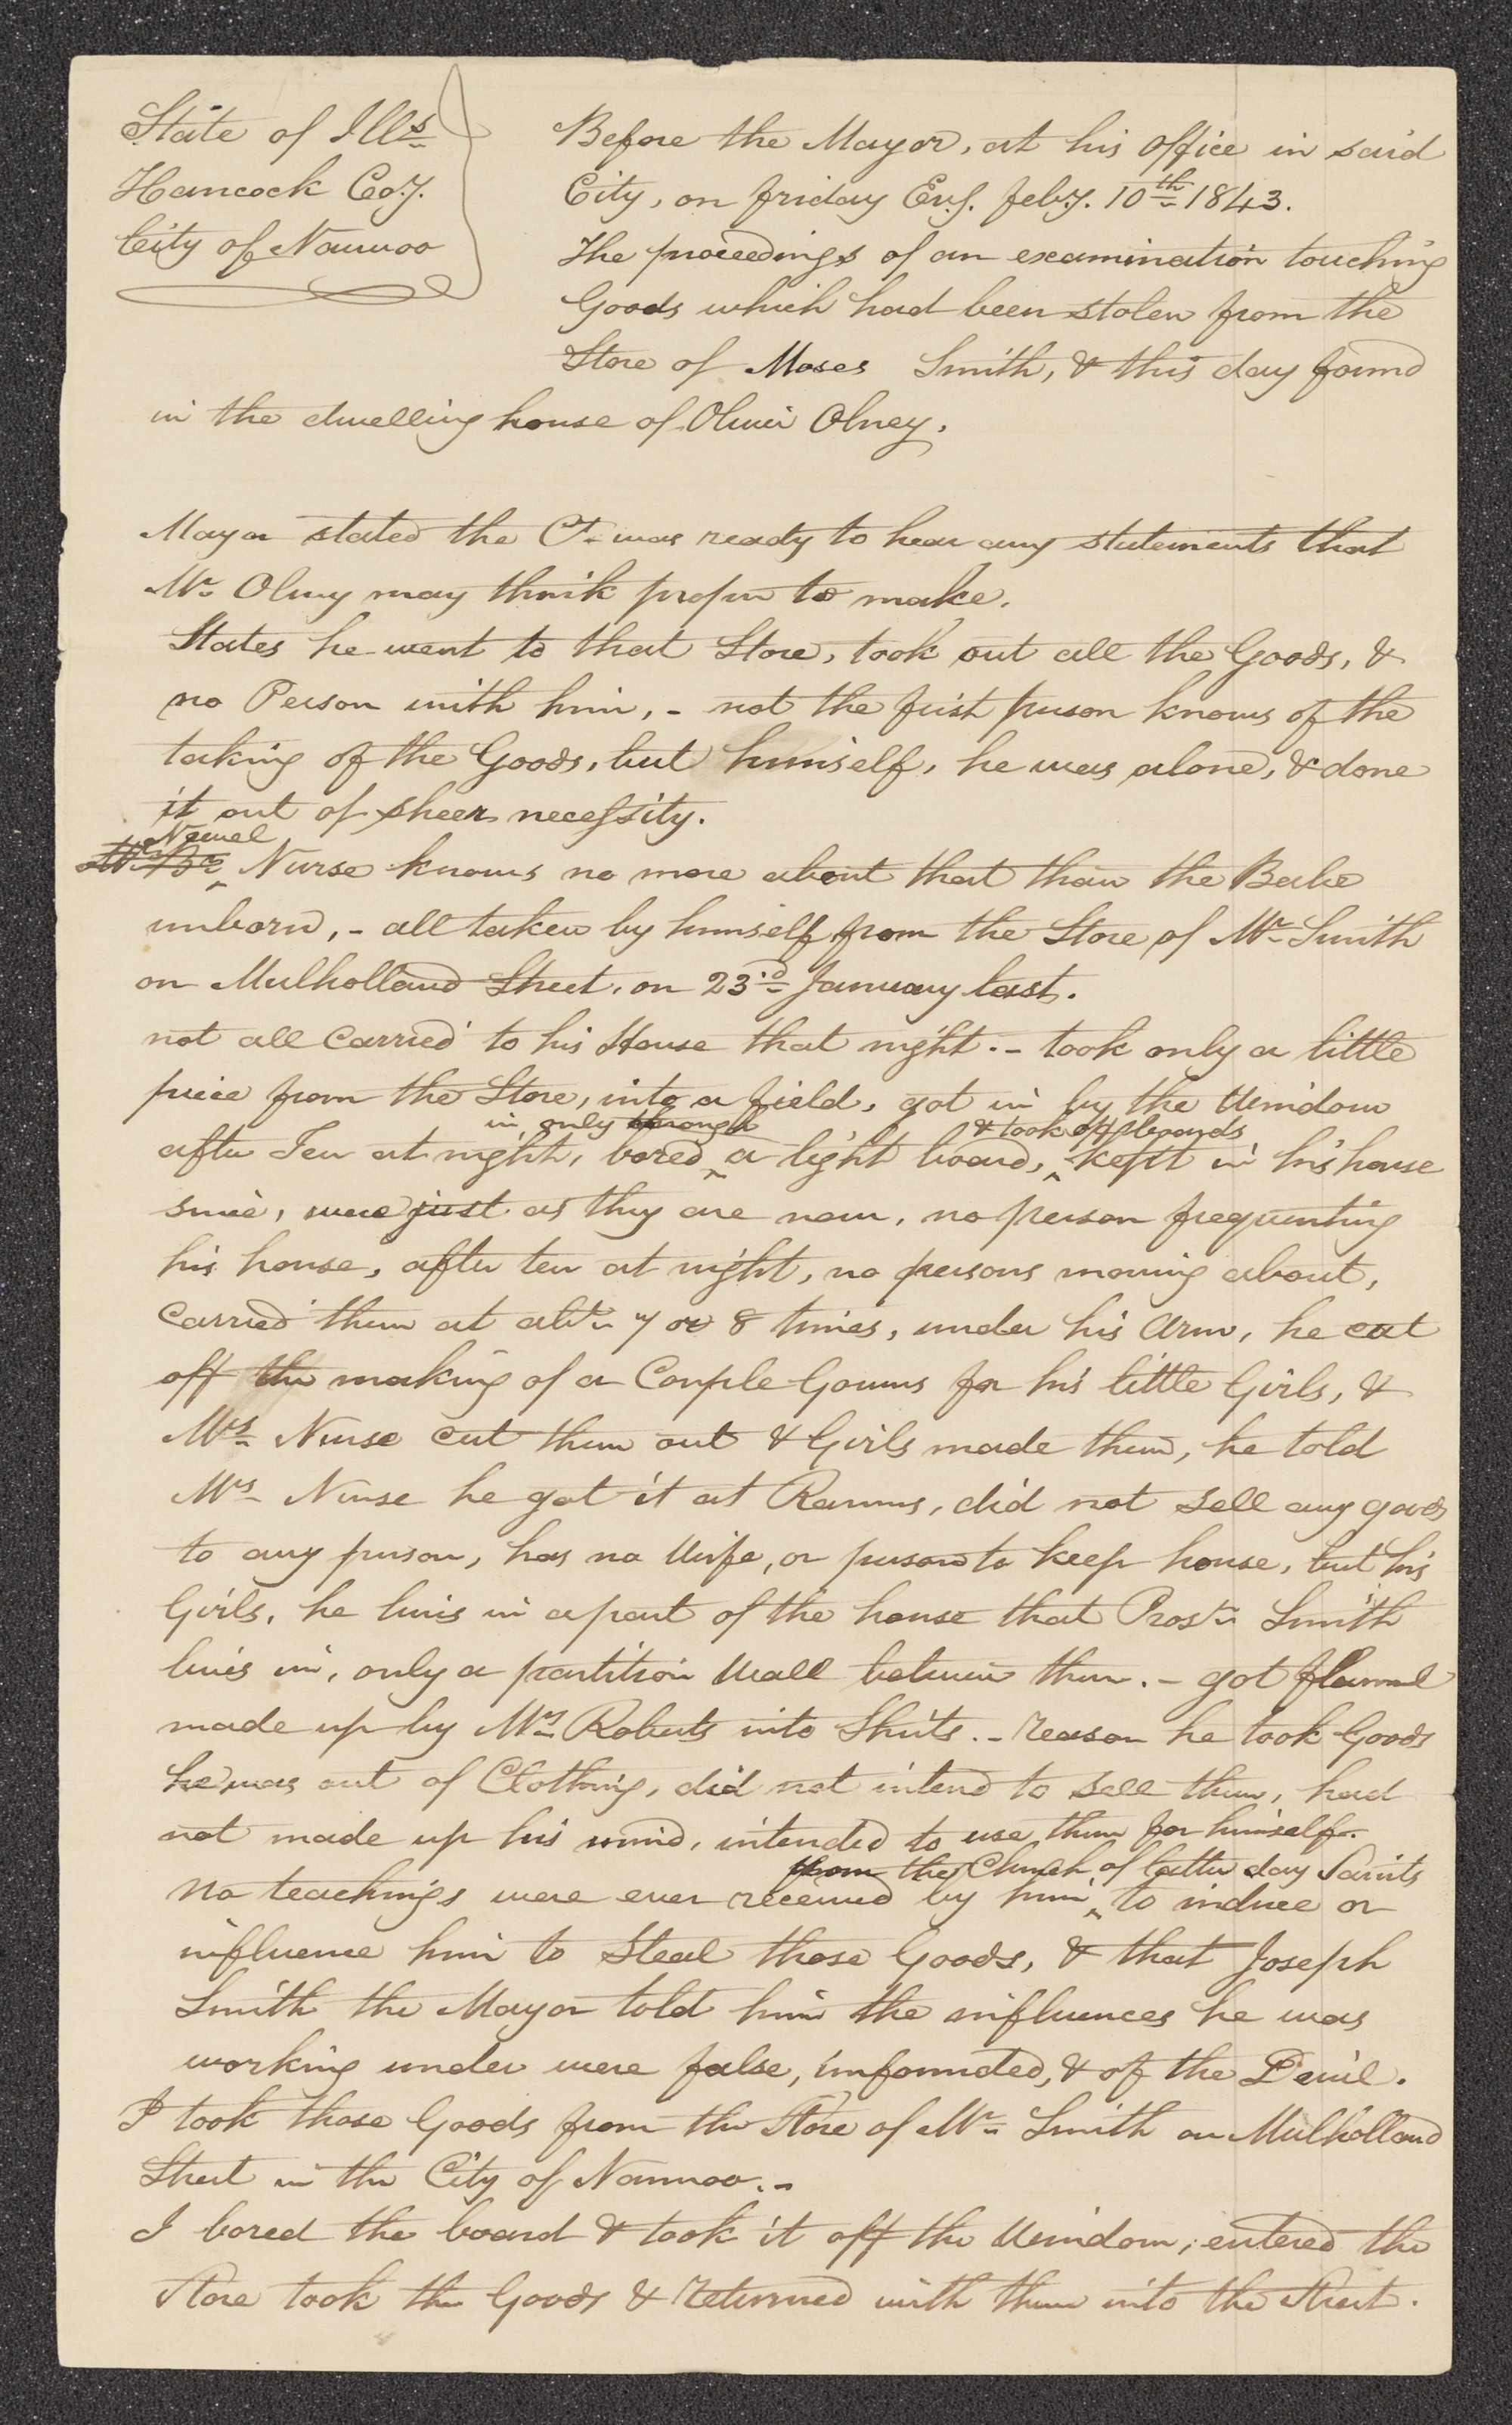 State of Ills
Hancock Coy.
City of Nauvoo
Before the Mayor, at his office in said
City, on friday Evg. feby. 10th 1843.
The proceedings of an examination touching
Goods which had been stolen from the
Store of Moses Smith, & this day found
in the dwelling house of Oliver Olney.
Mayor stated the Ct. was ready to hear any statements that
Mr Olney may think proper to make.
States he went to that Store, took out all the Goods, &
no Person with him, - not the first person knows of the
taking of the Goods, but himself, he was alone, & done
it out of sheer necessity.
Newel
Nurse knows no more about that than the Babe
unborn, - all taken by himself from the Store of Mr Smith
on Mulholland Street, on 23rd January last.
not all carried to his House that night. - took only a little
piece from the Store, into a field, got in by the Window
in, only through & took off boards
after Ten at night, bored a light board, kept in his house
since, were just as they are now, no person frequenting
his house, after ten at night, no persons moving about,
carried them at abt. 7 or 8 times, under his Arm, he cut
off the making of a Couple Gowns for his little Girls, &
Mrs Nurse cut them out & Girls made them, he told
Mrs Nurse he got it at Ramus, did not sell any goods
to any person, has no Wife, or person to keep house, but his
Girls, he lives in a part of the house that Prest. Smith
lives in, only a partition Wall between them. - got flannel
made up by Mrs Roberts into Shirts. - reason he took Goods
he was out of Clothing, did not intend to sell them, had
not made up his mind, intended to use them for himself.
from the Church of latter day Saints
no teachings were ever received by him to induce or
influence him to Steal those Goods, & that Joseph
Smith the Mayor told him the influences he was
working under were false, unfounded, & of the Devil.
I took those Goods from the Store of Mr Smith on Mulholland
Street in the City of Nauvoo. -
I bored the board & took it off the Window, entered the
Store took the Goods & returned with them into the Street.